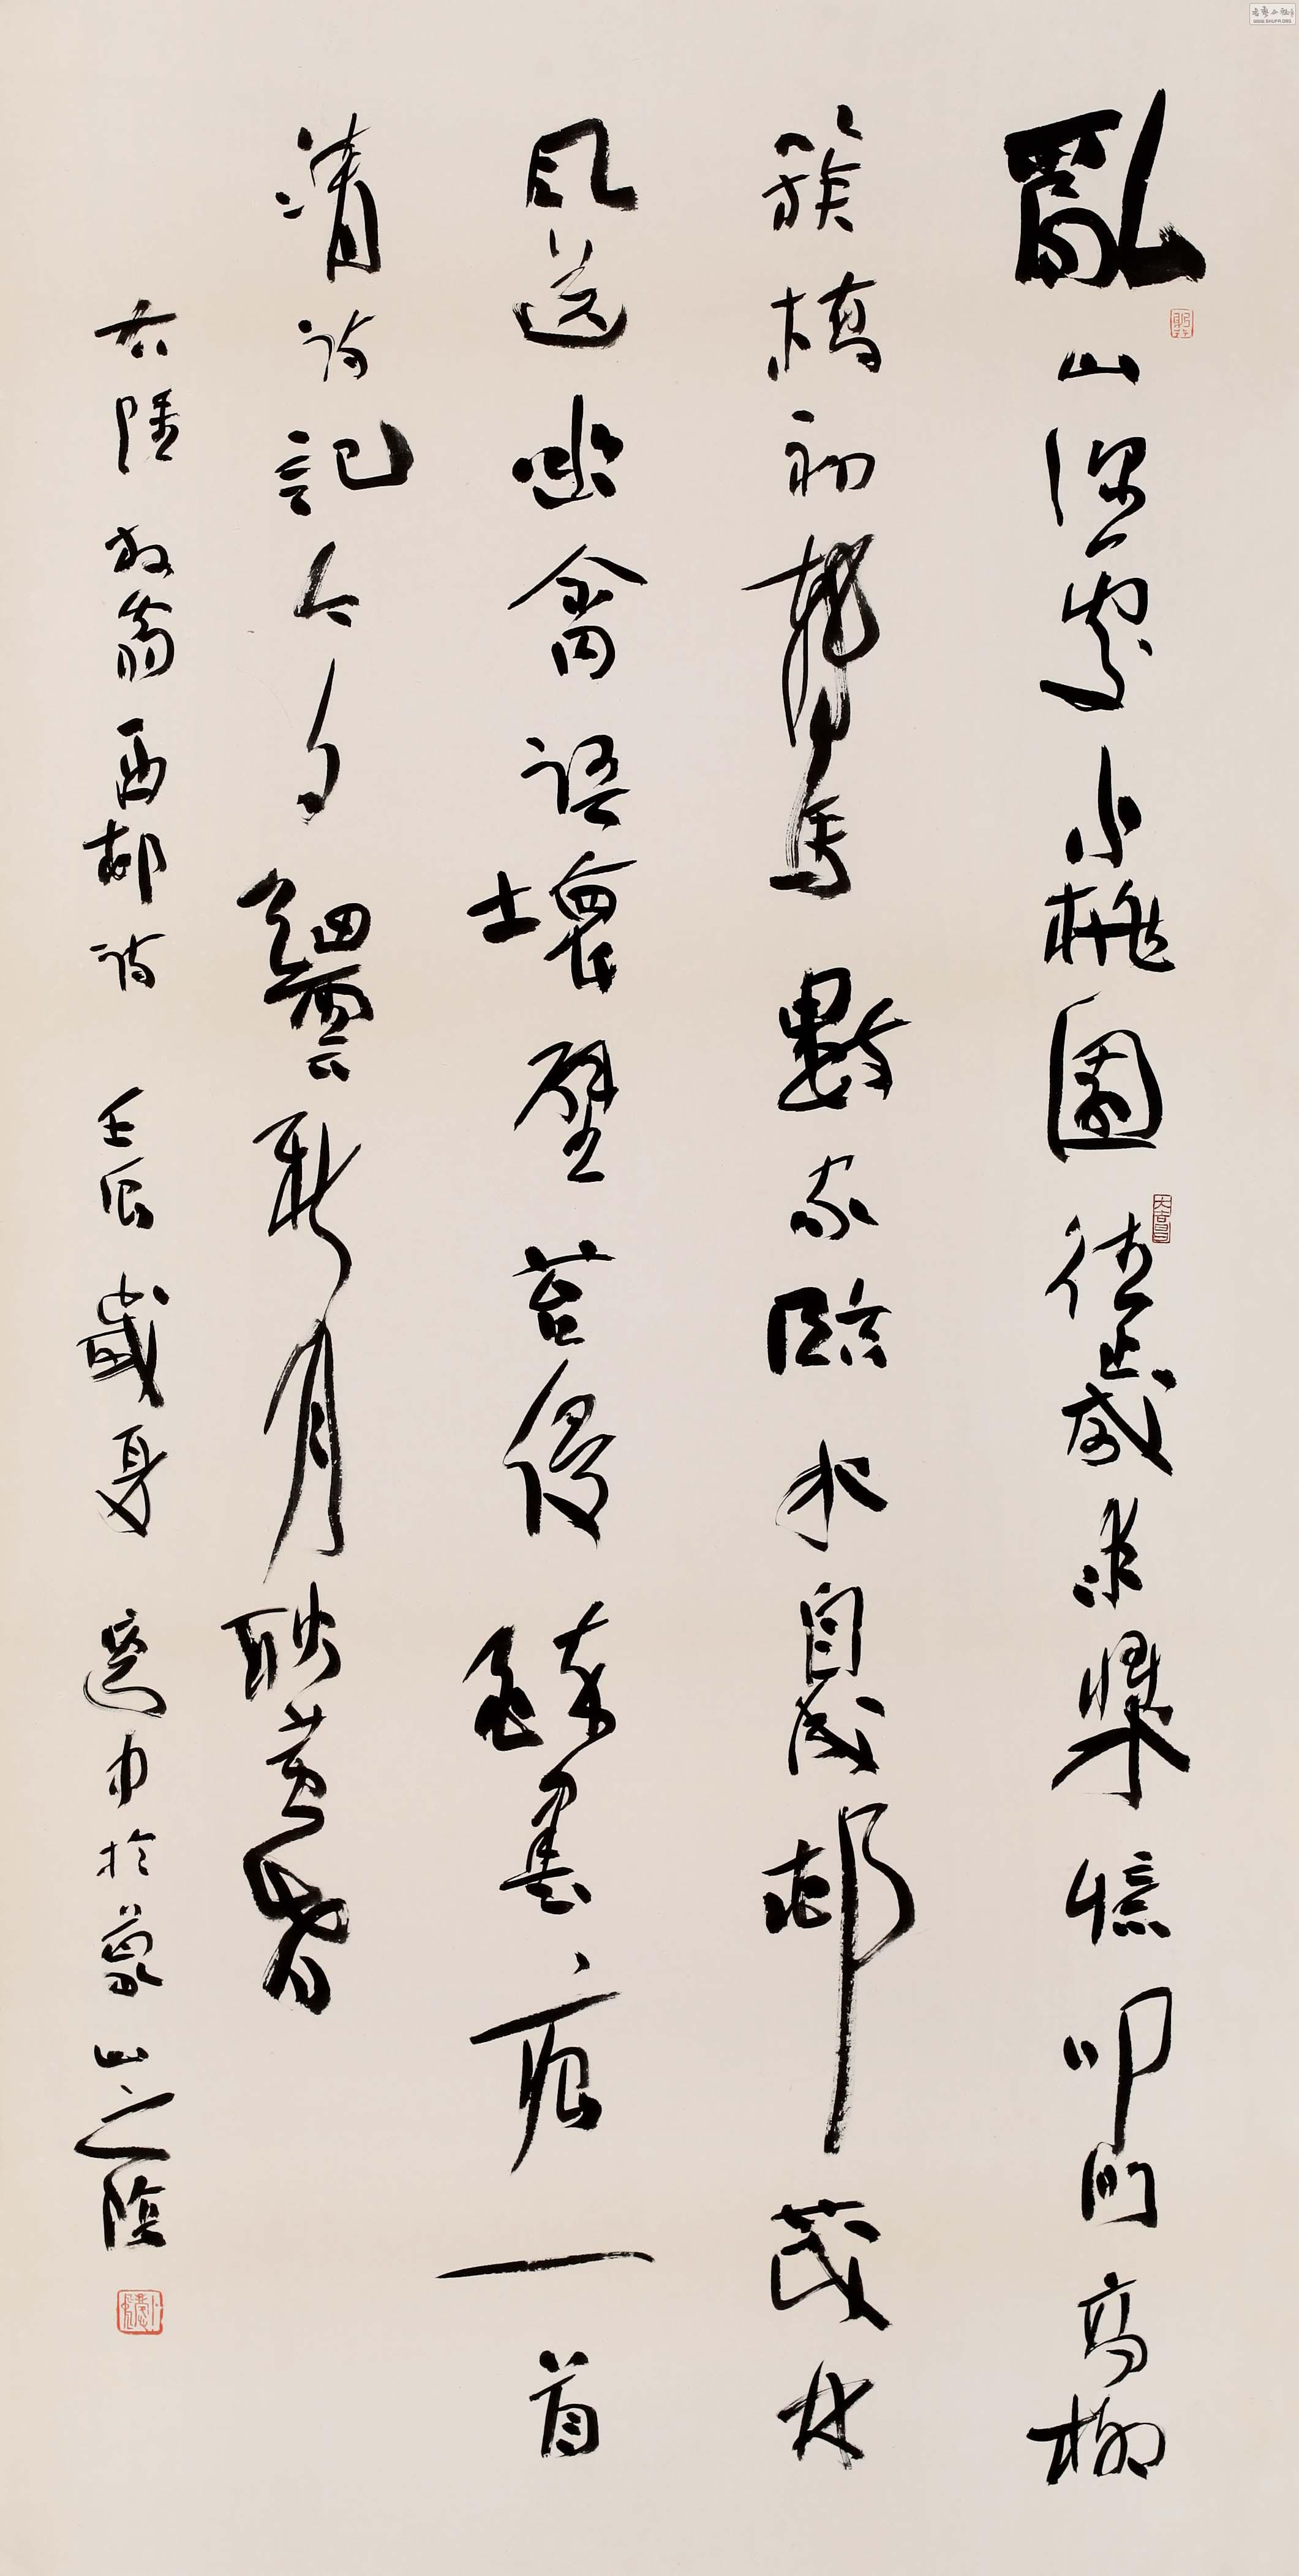 亂山深處小桃園往歲求漿憶叩門高柳
簇橋初轉馬數家臨水自成邨茂林
風送幽禽語壞壁苔侵醉墨痕一首
清詩記今夕細雲新月耿黃昏
右陸放翁西邨詩 壬辰歲夏 於蒙山之陰
大吉昌
WWW.SHUFA.ORG